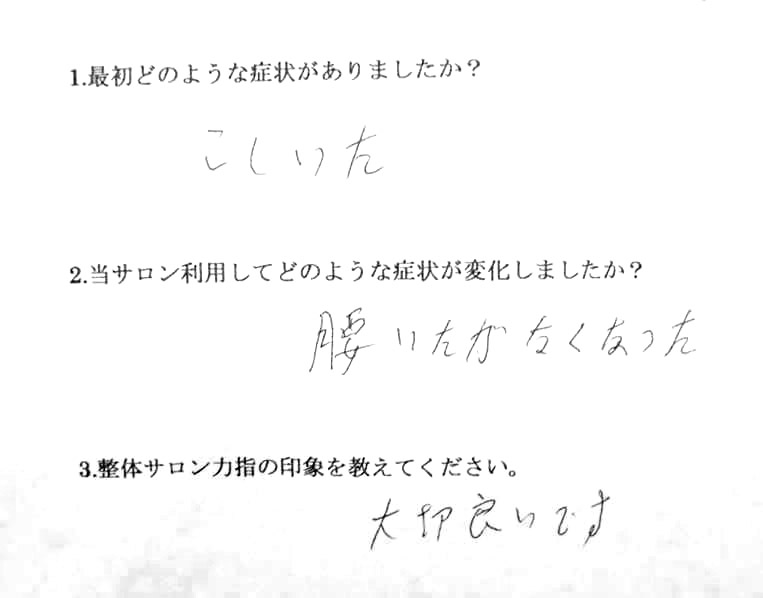 1.最初どのような症状がありましたか？
こしいた
2.当サロン利用してどのような症状が変化しましたか？
腰いたがなくなった
3.整体サロン力指の印象を教えてください。
大切良いです